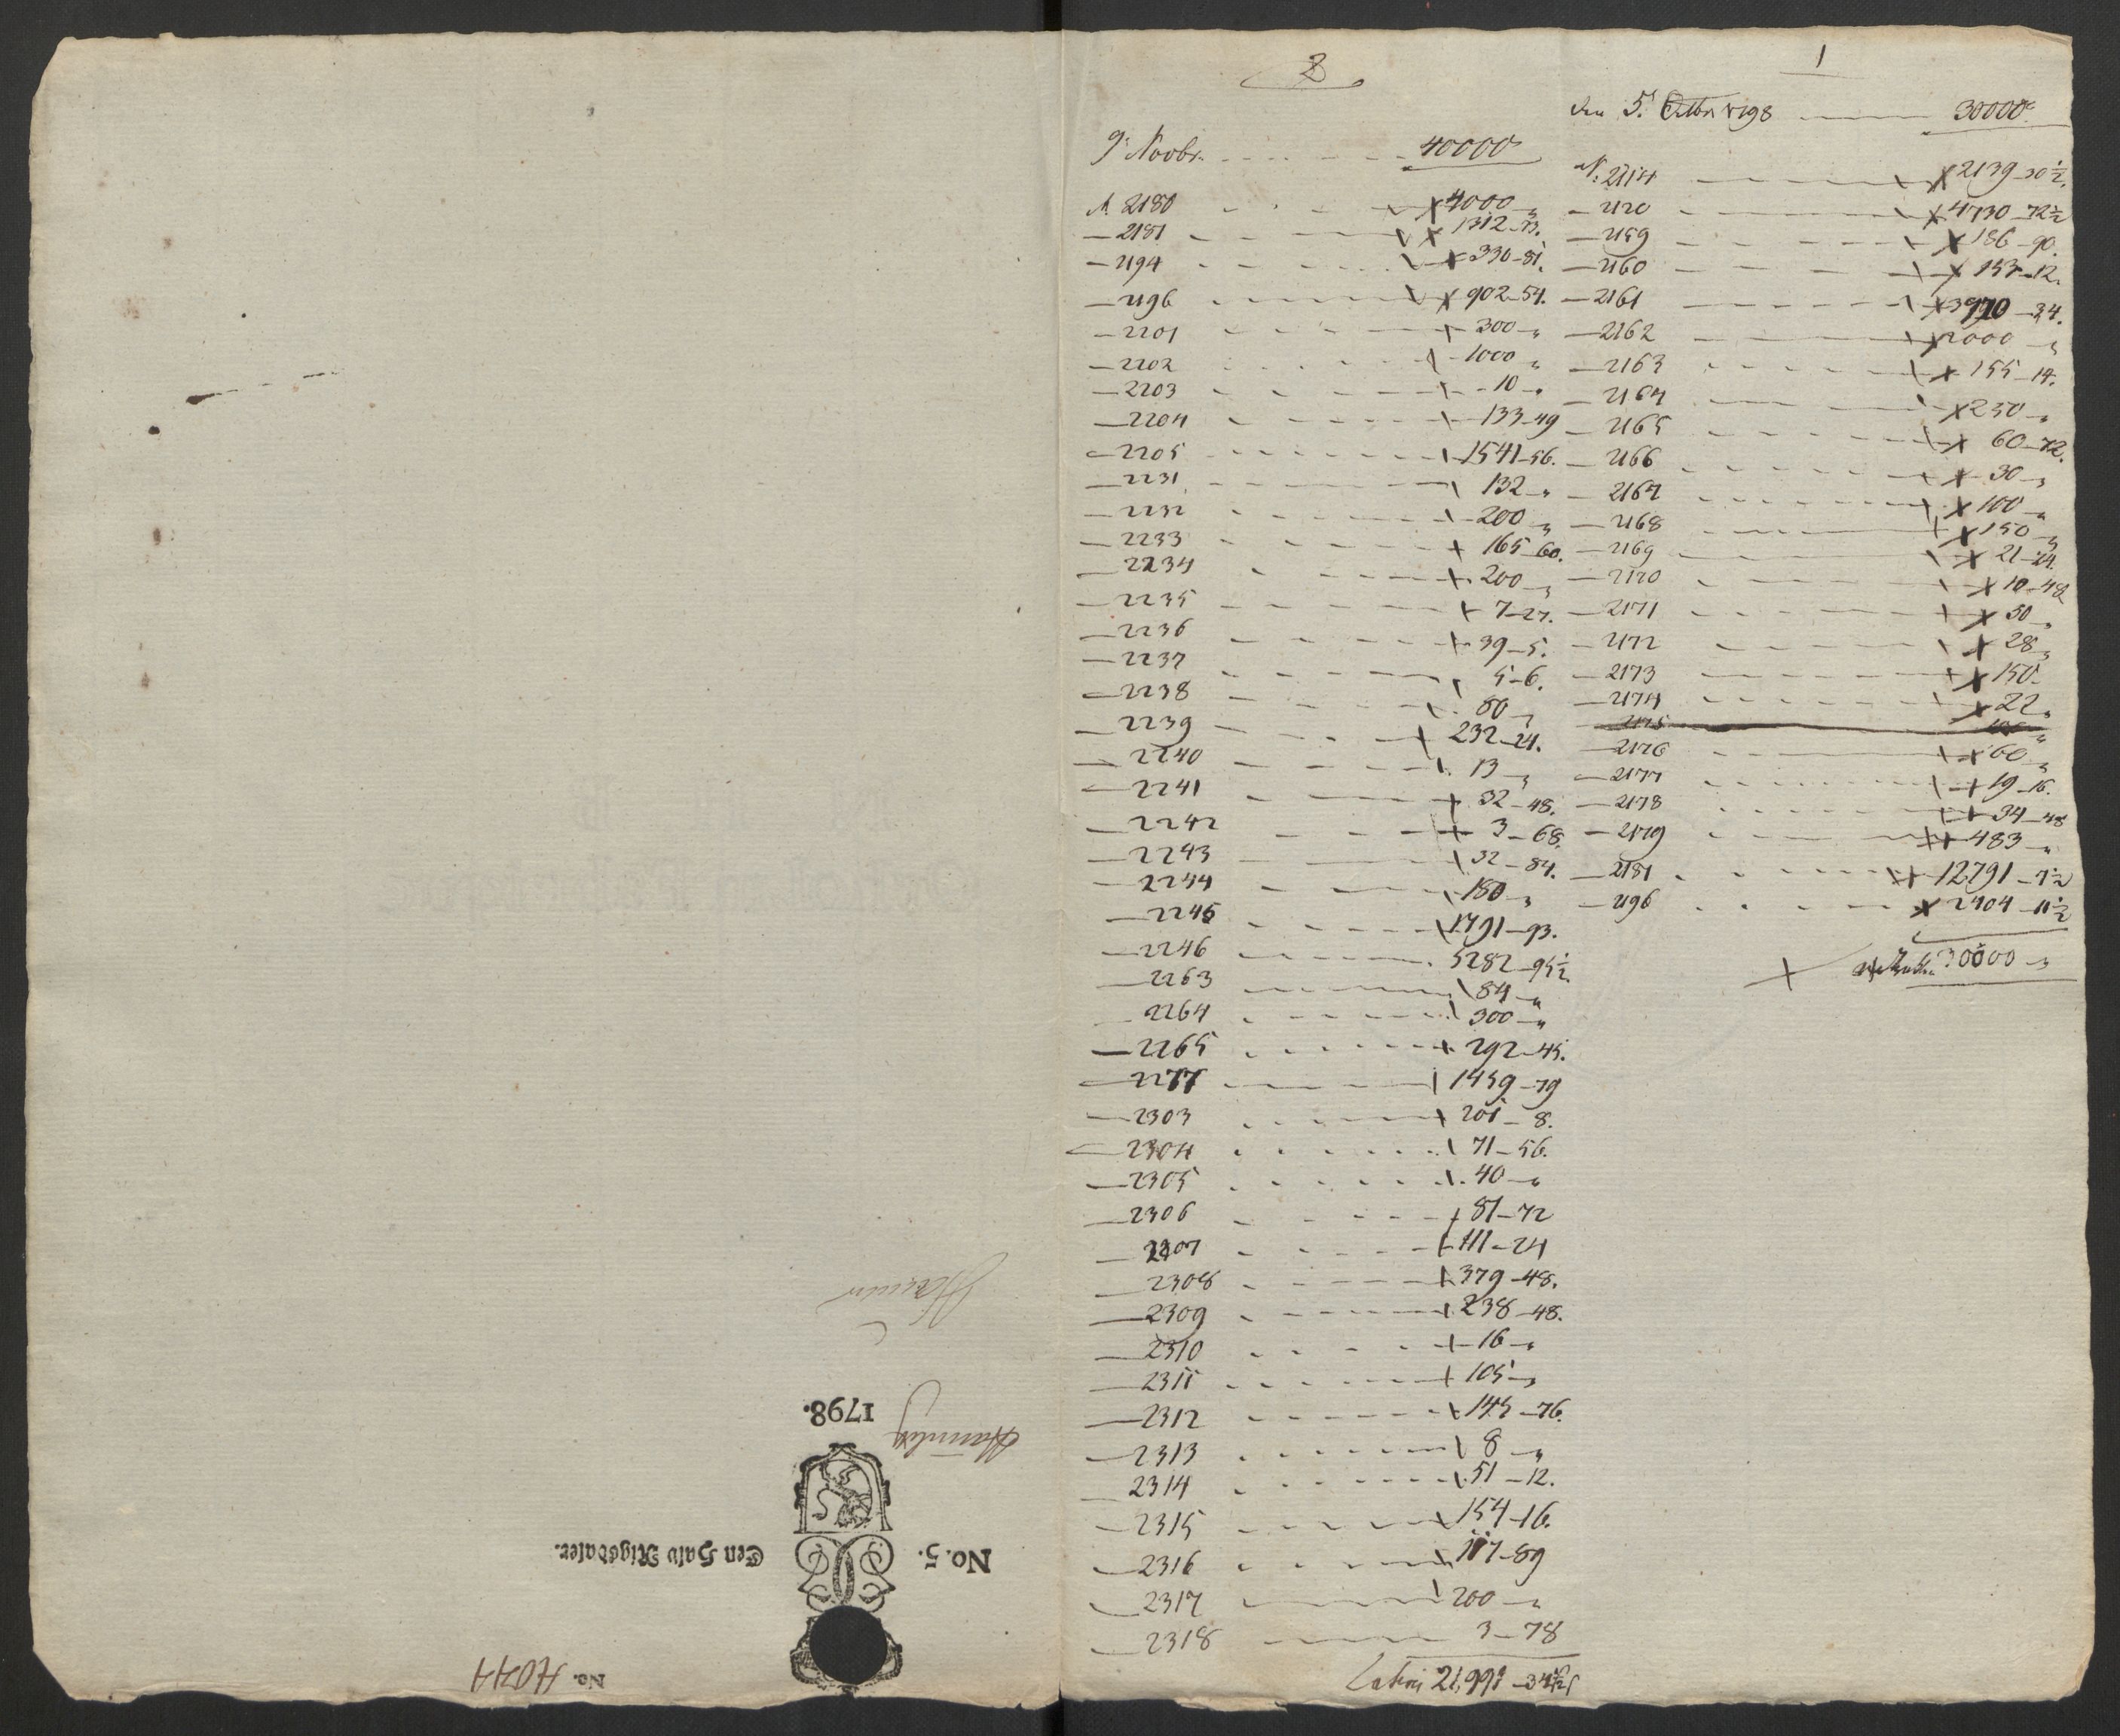 1
den 5. Octbr 1798 30000
N. 2114 2139-30½
- 2120 4730-72½
- 2159 186-90.
- 2160 153-12.
- 2161 3970-24.
- 2162 2000 "
- 2163 155-14.
- 2164 250 "
- 2165 60-72.
- 2166 30 "
- 2167 100 "
- 2168 150 "
- 2169 21-24.
- 2170 10-48
- 2171 50 "
- 2172 28 "
- 2173 150
- 2174 22 "
- 2175
- 2176 60 "
- 2177 19-16.
- 2178 34-48
- 2179 483 "
- 2181 12791-7½
- 2196 2404-11½
30000 "
2
9 Novbr. 40000
N. 2180 4000 "
- 2181 1312-73.
- 2194 330-81.
- 2196 902-54.
- 2201 300 "
- 2202 1000 "
- 2203 10 "
- 2204 133-49
- 2205 1541-56.
- 2231 132 "
- 2232 200 "
- 2233 165-60.
- 2234 200 "
- 2235 7-27.
- 2236 39-5.
- 2237 5-6.
- 2238 60 "
- 2239 232-24.
- 2240 13 "
- 2241 32-48.
- 2242 3-68.
- 2243 32-84.
- 2244 150 "
- 2245 1791-93.
- 2246 5282-95½.
- 2263 84 "
- 2264 300 "
- 2265 292-45.
- 2277 1459-79
- 2303 201-8.
- 2304 71-56.
- 2305 40 "
- 2306 81-72
- 2307 111-24
- 2308 379-48.
- 2309 238-48.
- 2310 16 "
- 2311 105 "
- 2312 145-76.
- 2313 8 "
- 2314 51-12.
- 2315 154-16.
- 2316 117-89
- 2317 200 "
- 2318 3-78
Latus 21,991-34½
No. 4044
No. 5. Een Halv Rigsdaler.
1798.